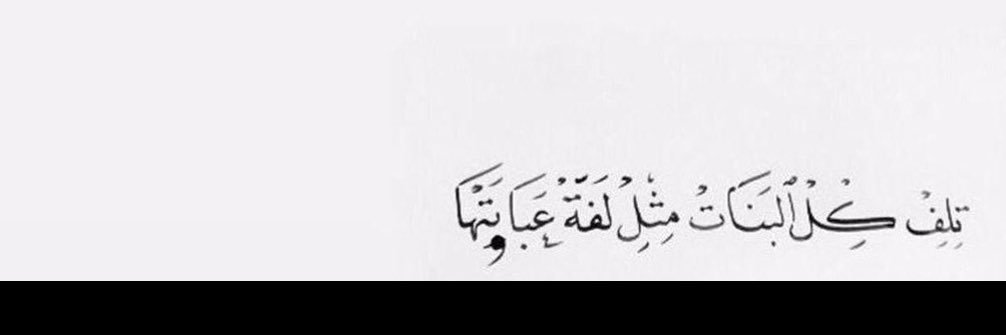 تِلِفْ كِلْ ٱلْبَنَاتْ مِثْلِ لَفَّةْ عَبَايَتْهَا